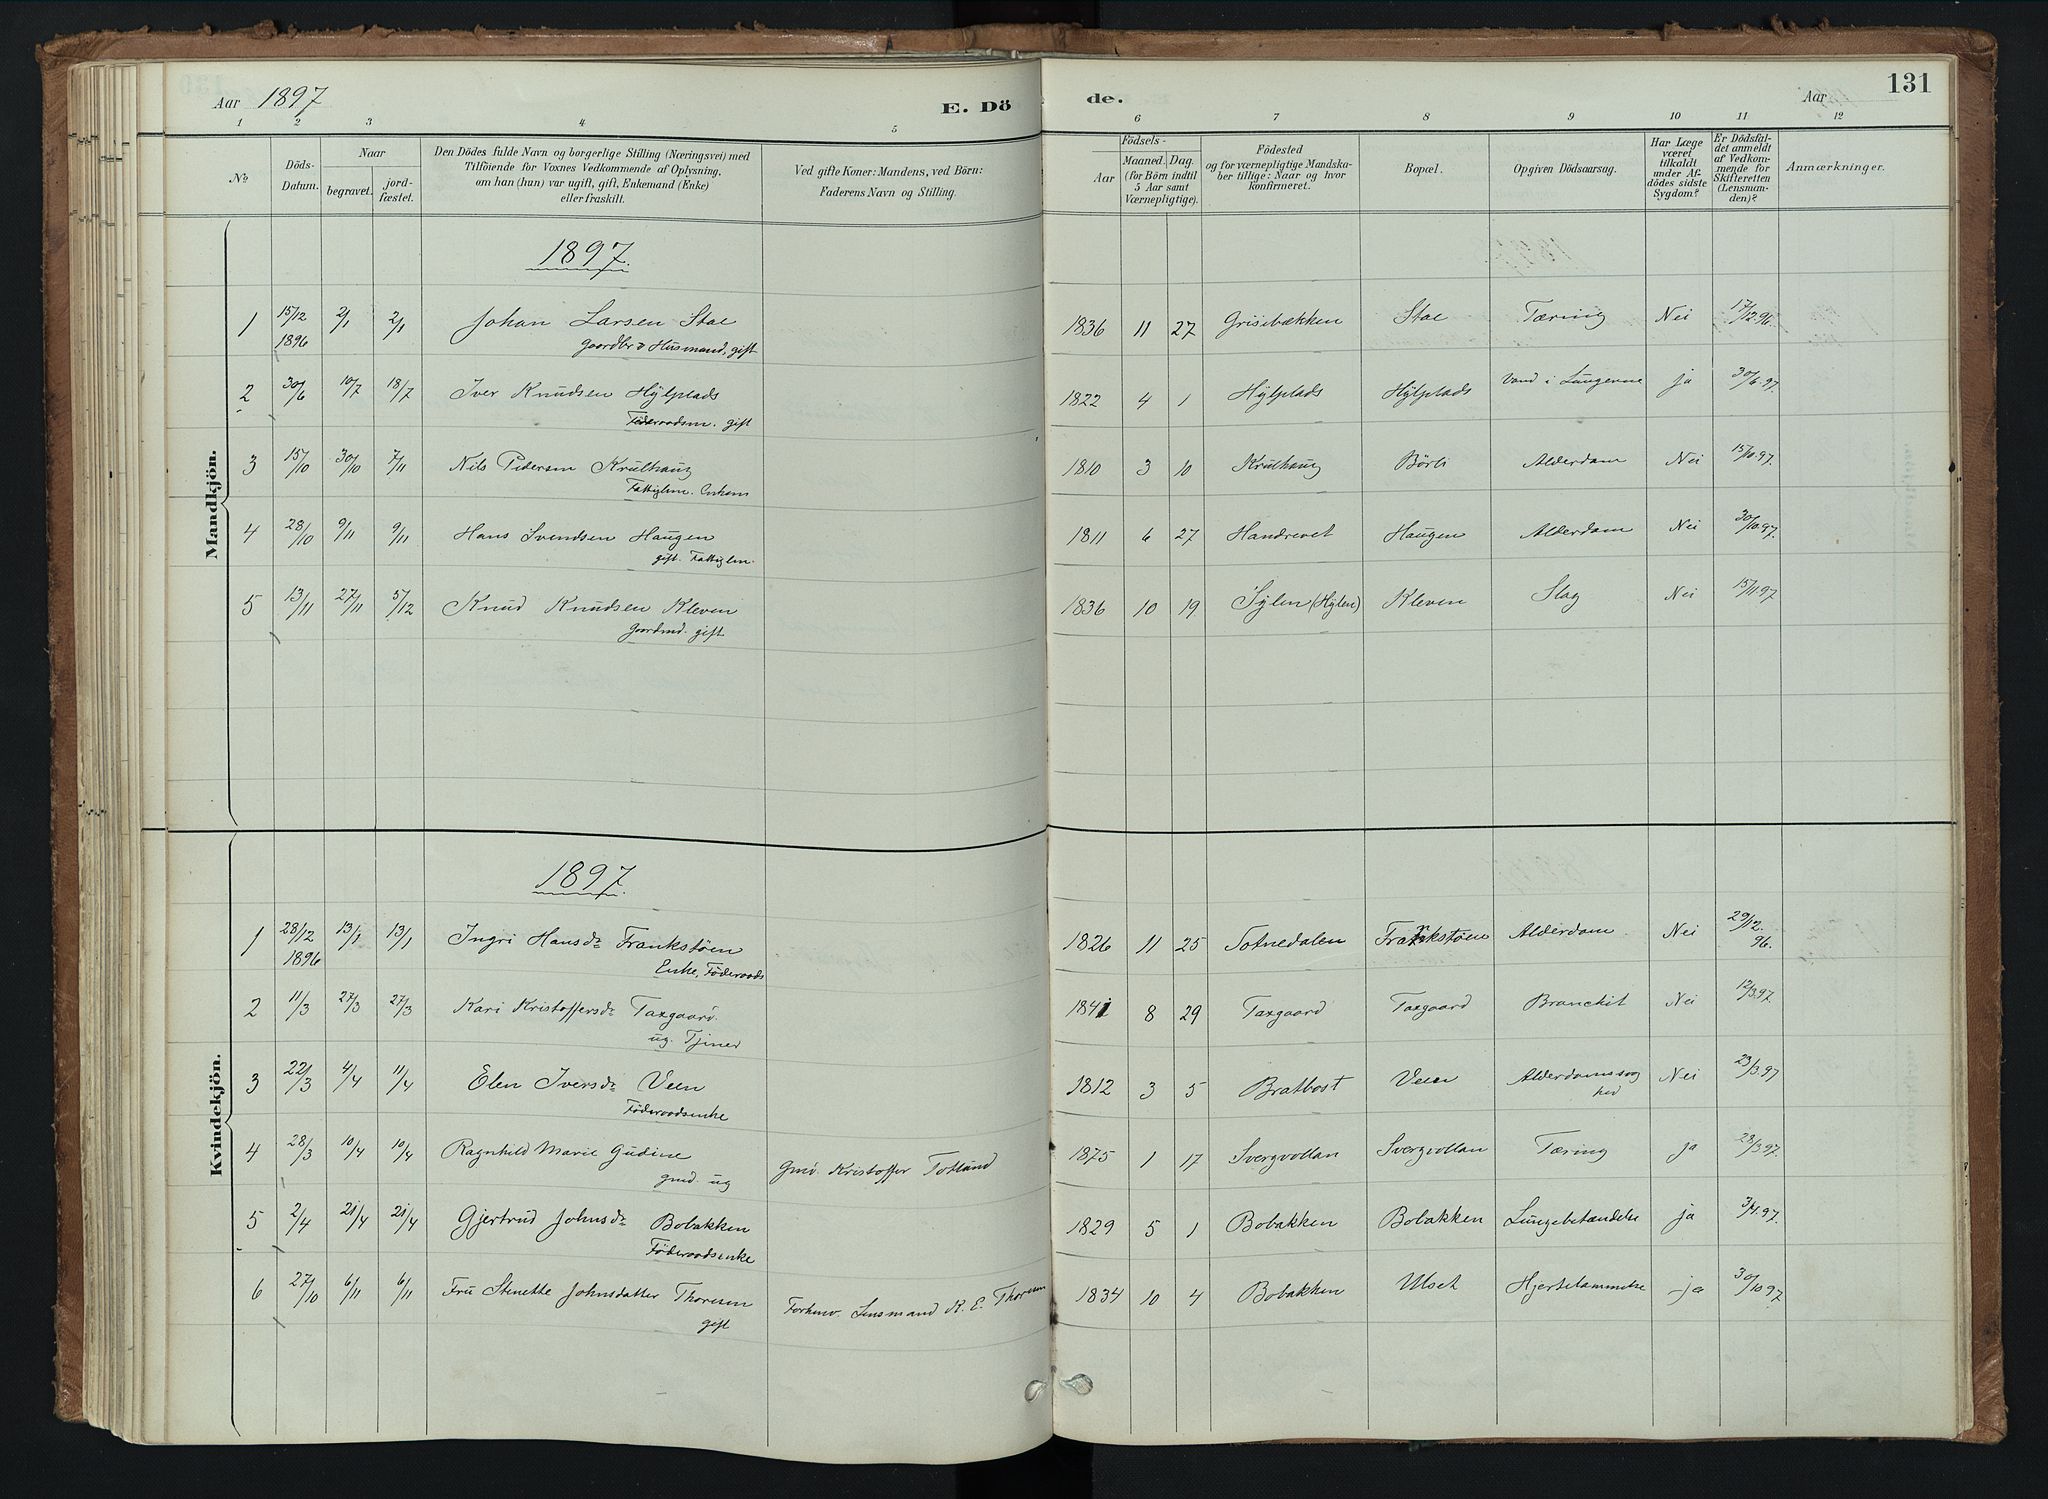 Aar 1897
E. Dö
de.
Aar
131
1 2 3 4 5 6 7 8 9 10 11 12
No.
Döds-Datum.
Naar
begravet.
jord-fæstet.
Den Dödes fulde Navn og borgerlige Stilling (Næringsvei) med
Tilföiende for Voxnes Vedkommende af Oplysning,
om han (hun) var ugift, gift, Enkemand (Enke)
eller fraskilt.
Ved gifte Koner: Mandens, ved Börn:
Faderens Navn og Stilling.
Födsels-
Aar
Maaned. Dag.
(for Börn indtil
5 Aar samt
Værnepligtige).
Födested
og for værnepligtige Mandska-
ber tillige: Naar og hvor
konfirmeret.
Bopæl.
Opgiven Dödsaarsag.
Har Læge
været
tilkaldt
under Af-
dödes sidste
Sygdom?
Er Dödsfal-
det anmeldt
af Vedkom-
mende for
Skifteretten
(Lensman-
den)?
Anmærkninger.
Mandkjön.
1897.
1 15/12 1896 2/1 2/1 Johan Larsen Stae 1836 11 27 Grisebækken Stae Tæring Nei 17/12.96.
Gaardbr. o Husmand, gift
2 30/6 10/7 18/7 Iver Knudsen Hÿlplads 1822 4 1 Hÿlplads Hÿlplads Vand i Lungerne ja 30/6.97.
Föderaadsm. gift
3 15/10 30/10 7/11 Nils Pedersen Krulhaug 1810 3 10 Krulhaug Börli Alderdom Nei 15/10.97.
Fattiglem. Enkem
4 28/10 9/11 9/11 Hans Svendsen Haugen 1811 6 27 Handrevet Haugen Alderdom Nei 30/10.97.
gift. Fattiglem.
5 13/11 27/11 5/12 Knud Knudsen Kleven 1836 10 19 Sÿlen (Hÿlen) Kleven Slag Nei 15/11.97
Gaardmd. gift
Kvindekjön.
1897.
1 28/12 1896 13/1 13/1 Ingri Hansdr Frankstöen 1826 11 25 Totnedalen Frankstöen Alderdom Nei 29/12. 96.
Enke, Föderaads
2 11/3 27/3 27/3 Kari Kristoffersdr Taxgaard. 1841 8 29 Taxgaard Taxgaard Bronchit Nei 12/3.97.
ug. Tjener
3 22/3 4/4 11/4 Elen Iversdr Veen 1812 3 5 Bratbost Veen Alderdomssvag Nei 23/3.97
hed
Föderaadsenke
4 28/3 10/4 10/4 Ragnhild Marie Gudine Gmd. Kristoffer Totlund 1875 1 17 Svergvollan Svergvollan Tæring ja 28/3 97.
gmd. ug
5 2/4 21/4 21/4 Gjertrud Johnsdr Bobakken 1829 5 1 Bobakken Bobakken Lungebetændelse ja 3/4.97.
Föderaadsenke
6 27/10 6/11 6/11 Fru Stenette Johnsdatter Thoresen Forhenv. Lensmand K. E. Thoresen 1834 10 4 Bobakken Ulset Hjertelammelse ja 30/10 97
gift